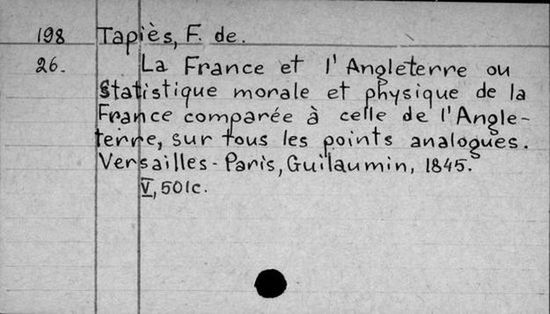 198 Tapiès, F. de.
26. La France et l'Angleterre ou
statistique morale et physique de la
France comparée à celle de l'Angle-
terre, sur tous les points analogues.
Versailles - Paris, Guilaumin, 1845.
V, 501c.